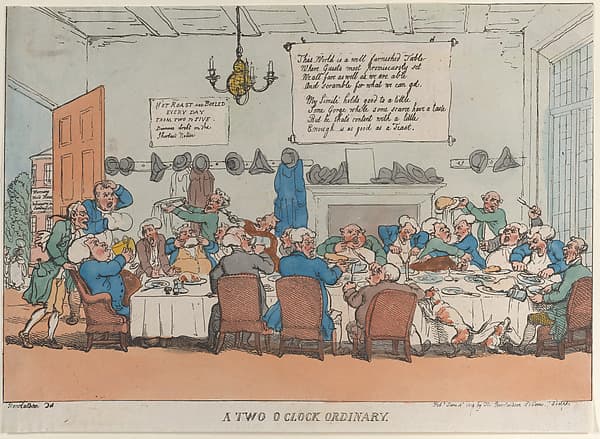 Hot Roast and Boiled
EVERY DAY
FROM TWO to FIVE
Dinners drest on the
Shortest Notice
This World is a well furnished Table
Where Guests most promiscuously set
We all fare as well as we are able
And Scramble for what we can get
My Simile holds good to a tittle
Some Gorge while some scarce have a taste
But he thats content with a little
Enough is as good as a Feast.
Rowlandson Del
A TWO O CLOCK ORDINARY.
by Tho Rowlandson